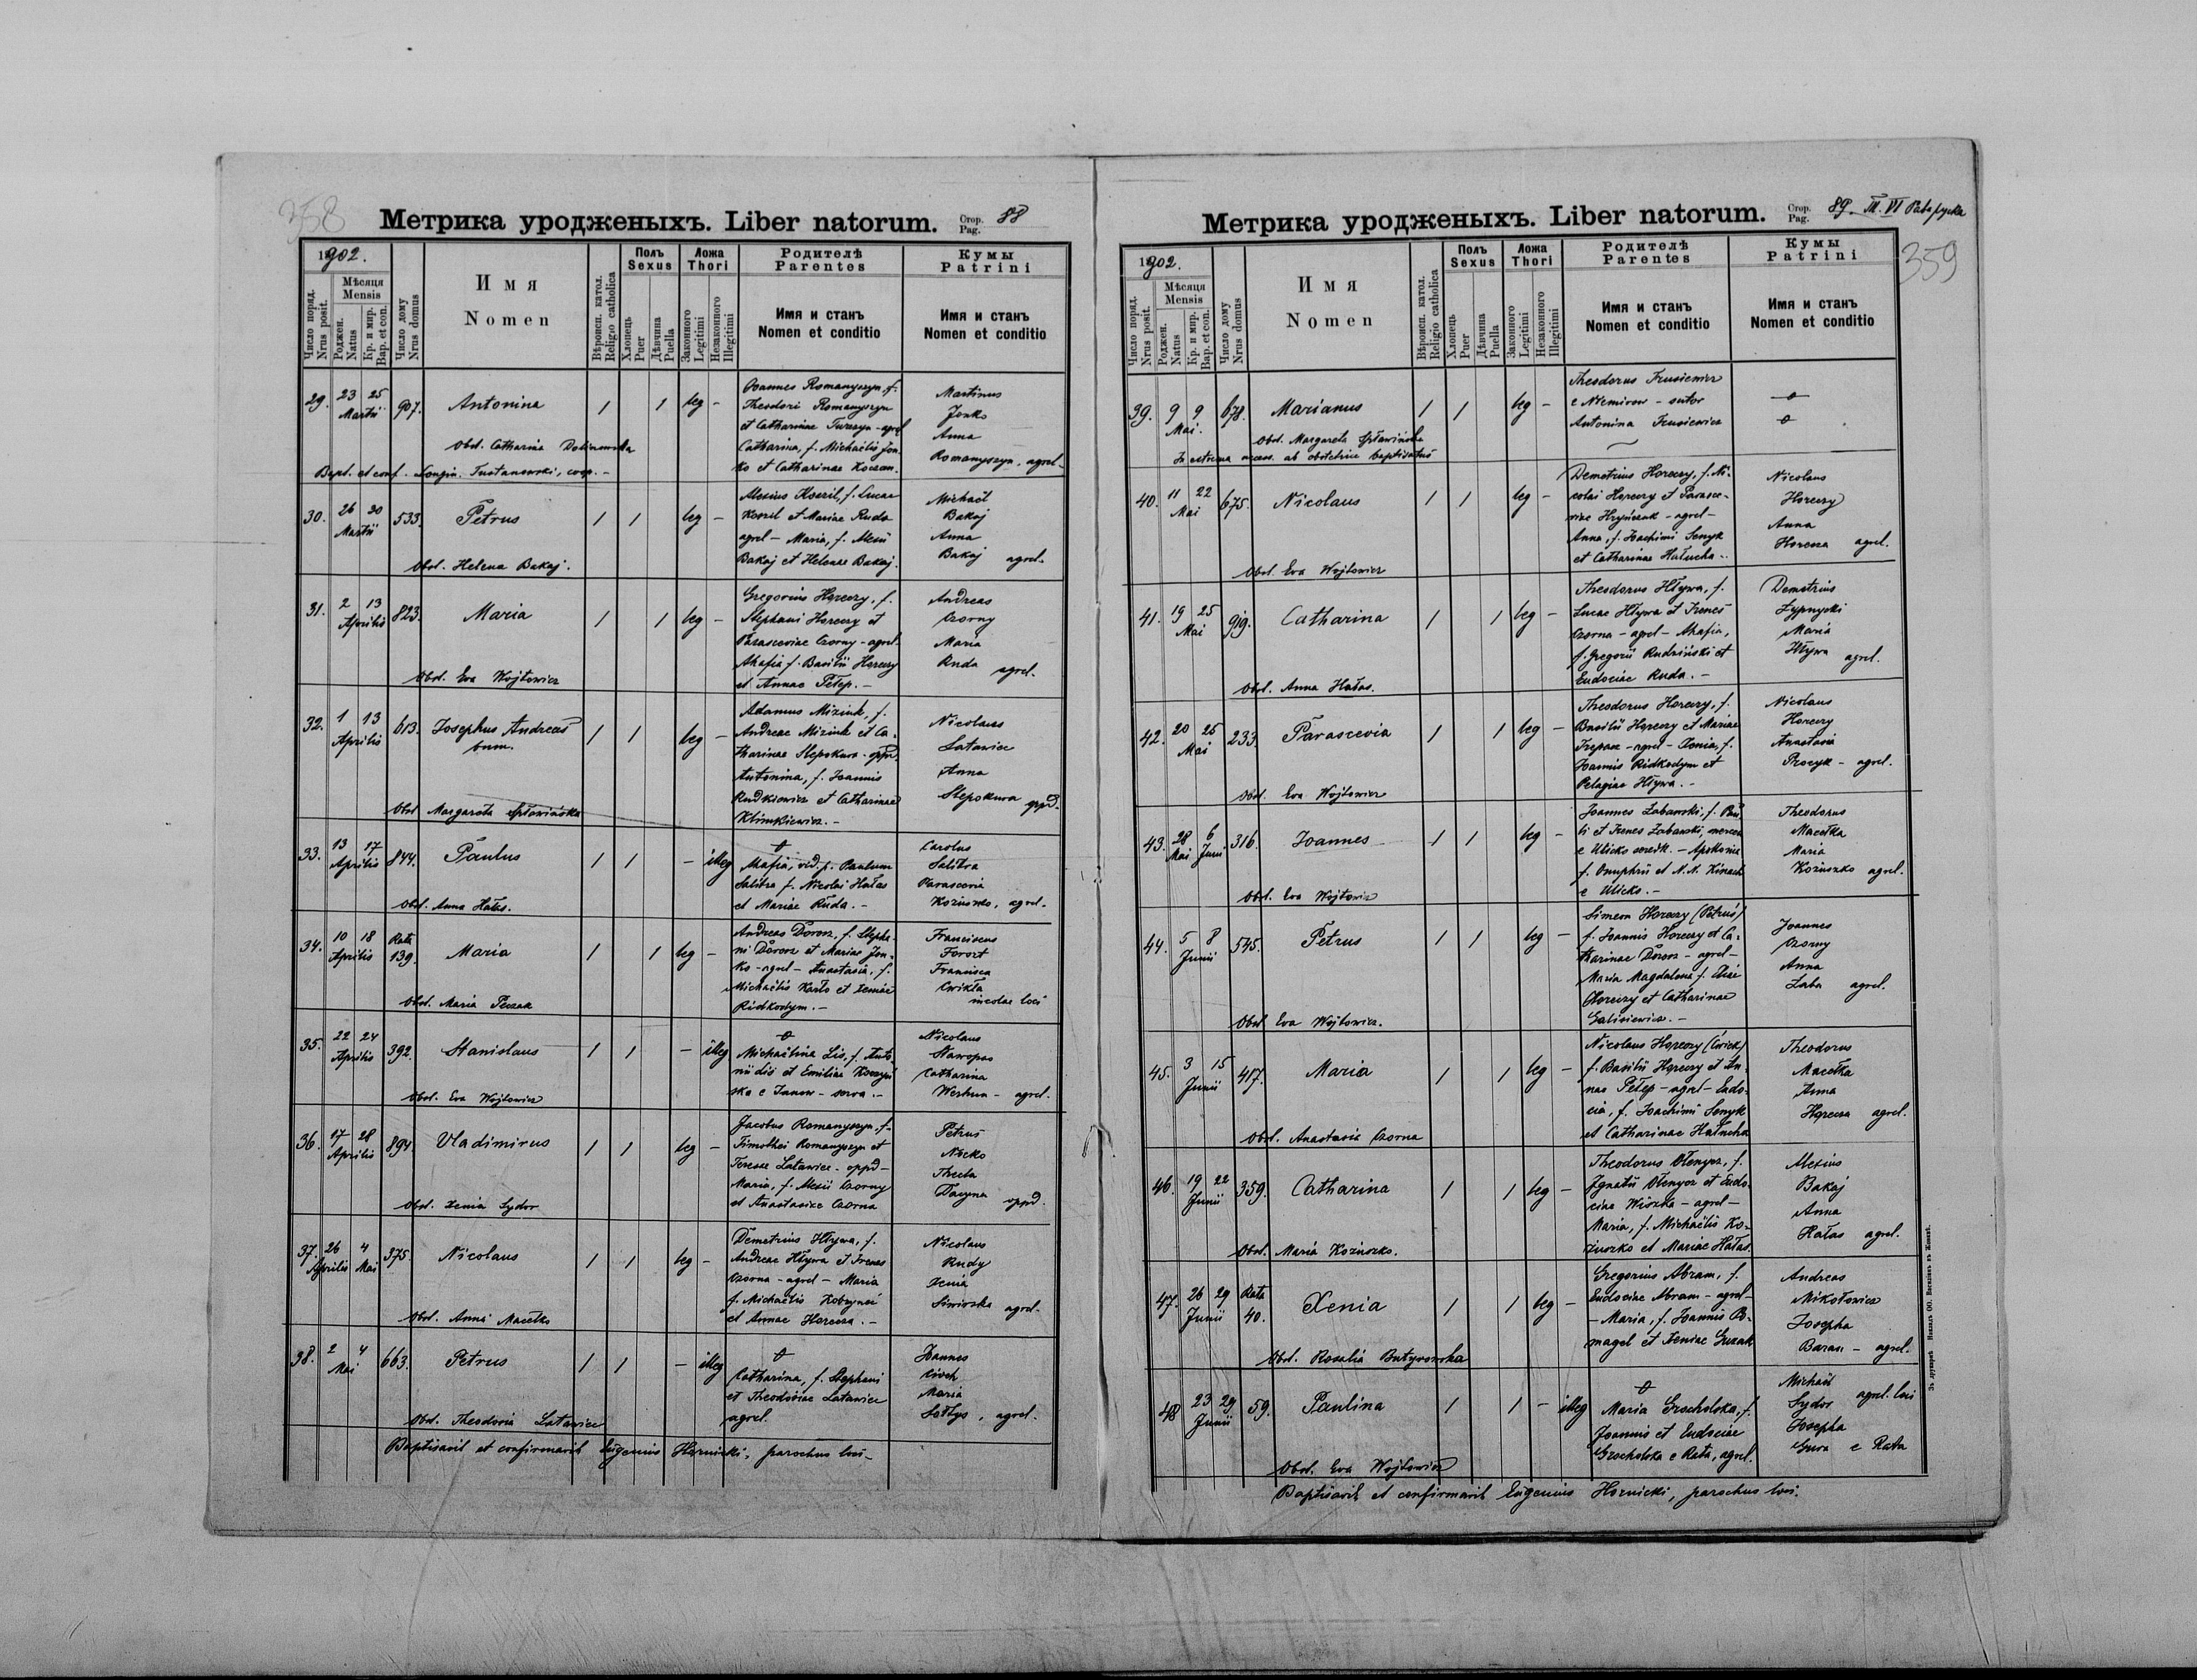 358
Метрика уродженыхъ. Liber natorum. Стор. Pag. 88
1902.
Число поряд. Nrus posit.
Мѣсяця Mensis
Роджен. Natus
Кр. и мир. Bap. et con.
Число дому Nrus domus
Имя Nomen
Вѣроисп. катол. Religio catholica
Полъ Sexus
Хлопець Puer
Дѣвчина Puella
Ложа Thori
Законного Legitimi
Незаконного Illegitimi
Родителѣ Parentes
Имя и станъ Nomen et conditio
Кумы Patrini
Имя и станъ Nomen et conditio
29. 23 25 Martii 907. Antonina 1 1 leg -
Joannes Romanyszyn f.
Theodori Romanyszyn
et Catharinae - agrel
Catharina, f. Michaëlis Jon-
ko et Catharinae
Martinus
Jonko
Anna
Romanyszyn, agrel.
Obst. Catharina Dolinowska
Bapt. et conf. Longin. Tustanowski, coop. -
30. 26 30 Martii 533. Petrus 1 1 leg -
Alexius Kozil, f. Lucae
Kozil et Mariae Ruda
agrel - Maria, f. Alexii
Bakaj et Helenae Bakaj.
Michaël
Bakaj
Anna
Bakaj agrel.
Obst. Helena Bakaj.
31. 2 13 Aprilis 823. Maria 1 1 leg -
Gregorius Horeczy, f.
Stephani Horeczy et
Parasceviae Czorny - agrel.
Ahafia f. Basilii Horeczy
et Annae Petep. -
Andreas
Czorny
Maria
Ruda agrel.
Obst. Eva Wojtowicz
32. 1 13 Aprilis 613. Josephus Andreas bnm. 1 1 leg -
Adamus Mizink, f.
Andreae Mizink et Ca-
tharinae Stepokura - oppd.
Antonina, f. Joannis
Rudkiewicz et Catharinae
Klimkiewicz. -
Nicolaus
Latawiec
Anna
Stepokura oppd.
Obst Margareta Spławińska
33. 13 17 Aprilis 844. Paulus 1 1 - illeg
Ahafia, vid. p. Paulum
Salitra f. Nicolai Hałas
et Mariae Ruda. -
Carolus
Salitra
Parascevia
Koziuszko, agrel.
Obst. Anna Hałas.
34. 10 18 Aprilis Rata 139. Maria 1 1 leg -
Andreas Dorosz, f. Stepha-
ni Dorosz et Mariae Jon-
ko - agrel - Anastasia, f.
Michaëlis Karło et Xeniae
Ridkodym. -
Franciscus
Forost
Francisca
Cwikła
incolae loci
Obst. Maria Peczak
35. 22 24 Aprilis 392. Stanislaus 1 1 - illeg
Michaëlina Lis, f. Anto-
nii Lis et Emiliae
ska e Janow - serva. -
Nicolaus
Stawopas
Catharina
Werhun - agrel.
Obst. Eva Wojtowicz
36. 17 28 Aprilis 894. Vladimirus 1 1 leg -
Jacobus Romanyszyn, f.
Timothei Romanyszyn et
Teresae Latawiec - oppd -
Maria, f. Alexii Czorny
et Anastasiae Czorna
Petrus
Thecla
oppd.
Obst. Xenia Sydor
37. 26 Aprilis 4 Mai 375. Nicolaus 1 1 leg -
Demetrius Hływa, f.
Andreae Hływa et Irenes
Czorna - agrel - Maria
f. Michaëlis
et Annae Horecza. -
Nicolaus
Rudy
Xenia
agrel.
Obst. Anna Macełko
38. 2 4 Mai 663. Petrus 1 1 - illeg
Catharina, f. Stephani
et Theodosiae Latawiec
agrel.
Joannes
Maria
Sołtys, agrel.
Obst. Theodosia Latawiec
Baptisavit et confirmavit Eugenius Hornicki, parochus loci -
Метрика уродженыхъ. Liber natorum. Стор. Pag. 89. III. VI Рава руска
359
1902.
Число поряд. Nrus posit.
Мѣсяця Mensis
Роджен. Natus
Кр. и мир. Bap. et con.
Число дому Nrus domus
Имя Nomen
Вѣроисп. катол. Religio catholica
Полъ Sexus
Хлопець Puer
Дѣвчина Puella
Ложа Thori
Законного Legitimi
Незаконного Illegitimi
Родителѣ Parentes
Имя и станъ Nomen et conditio
Кумы Patrini
Имя и станъ Nomen et conditio
39. 9 9 Mai. 678. Marianus 1 1 leg -
Theodorus Trusiewicz
e Niemirow - sutor
Antonina Trusiewicz
Obst. Margareta Spławińska
In extrema necess. ab obstetrice baptisatus
40. 11 22 Mai 675. Nicolaus 1 1 leg -
Demetrius Horeczy, f. Ni-
colai Horeczy et Parasce-
viae Hryńczuk - agrel -
Anna, f. Joachimi Senyk
et Catharinae Hałucha -
Nicolaus
Horeczy
Anna
Horecza agrel.
Obst. Eva Wojtowicz
41. 19 25 Mai 919. Catharina 1 1 leg -
Theodorus Hływa, f.
Lucae Hływa et Irenes
Czorna - agrel - Ahafia,
f. Gregorii Rudziński et
Eudociae Ruda. -
Demetrius
Łypnycki
Maria
Hływa agrel.
Obst. Anna Hałas.
42. 20 25 Mai 233. Parascevia 1 1 leg -
Theodorus Horeczy, f.
Basilii Horeczy et Mariae
- agrel - Xenia, f.
Joannis Ridkodym et
Pelagiae Hływa. -
Nicolaus
Horeczy
Anastasia
Procyk - agrel.
Obst. Eva Wojtowicz
43. 28 Mai 6 Juni 316. Joannes 1 1 leg -
Joannes Zabawski, f. Pau-
li et Irenes Zabawski,
e Ulicko seredk. - Apolonia
f. Onuphrii et N.N. Kinach
e Ulicko. -
Theodorus
Macełka
Maria
Koziuszko agrel.
Obst. Eva Wojtowicz
44. 5 8 Junii 545. Petrus 1 1 leg -
Simeon Horeczy (Petruś)
f. Joannis Horeczy et Ca-
tharinae Dorosz - agrel -
Maria Magdalena f. Eliae
Horeczy et Catharinae
Galisiewicz. -
Joannes
Czorny
Anna
Zaba agrel.
Obst Eva Wojtowicz.
45. 3 15 Junii 417. Maria 1 1 leg -
Nicolaus Horeczy
f. Basilii Horeczy et An-
nae Petep - agrel - Eudo-
cia, f. Joachimi Senyk
et Catharinae Hałucha
Theodorus
Macełka
Anna
Horecza agrel.
Obst. Anastasia Czorna
46. 19 22 Junii 359. Catharina 1 1 leg -
Theodorus Ołenycz, f.
Ignatii Ołenycz et Eudo-
ciae - agrel -
Maria, f. Michaëlis Ko-
ziuszko et Mariae Hałas.
Alexius
Bakaj
Anna
Hałas agrel.
Obst. Maria Koziuszko.
47. 26 29 Junii Rata 40. Xenia 1 1 leg -
Gregorius Abram, f.
Eudociae Abram - agrel -
- Maria, f. Joannis Po-
magel et Xeniae Guzak
Andreas
Mikołowicz
Josepha
Baran - agrel.
Obst. Rosalia Butyrowska
48. 23 29 Junii 59. Paulina 1 1 - illeg
Maria Grocholska, f.
Joannis et Eudociae
Grocholska e Rata, agrel.
Michaël
Sydor agrel. loci
Josepha
Gura e Rata
Obst. Eva Wojtowicz
Baptisavit et confirmavit Eugenius Hornicki, parochus loci.